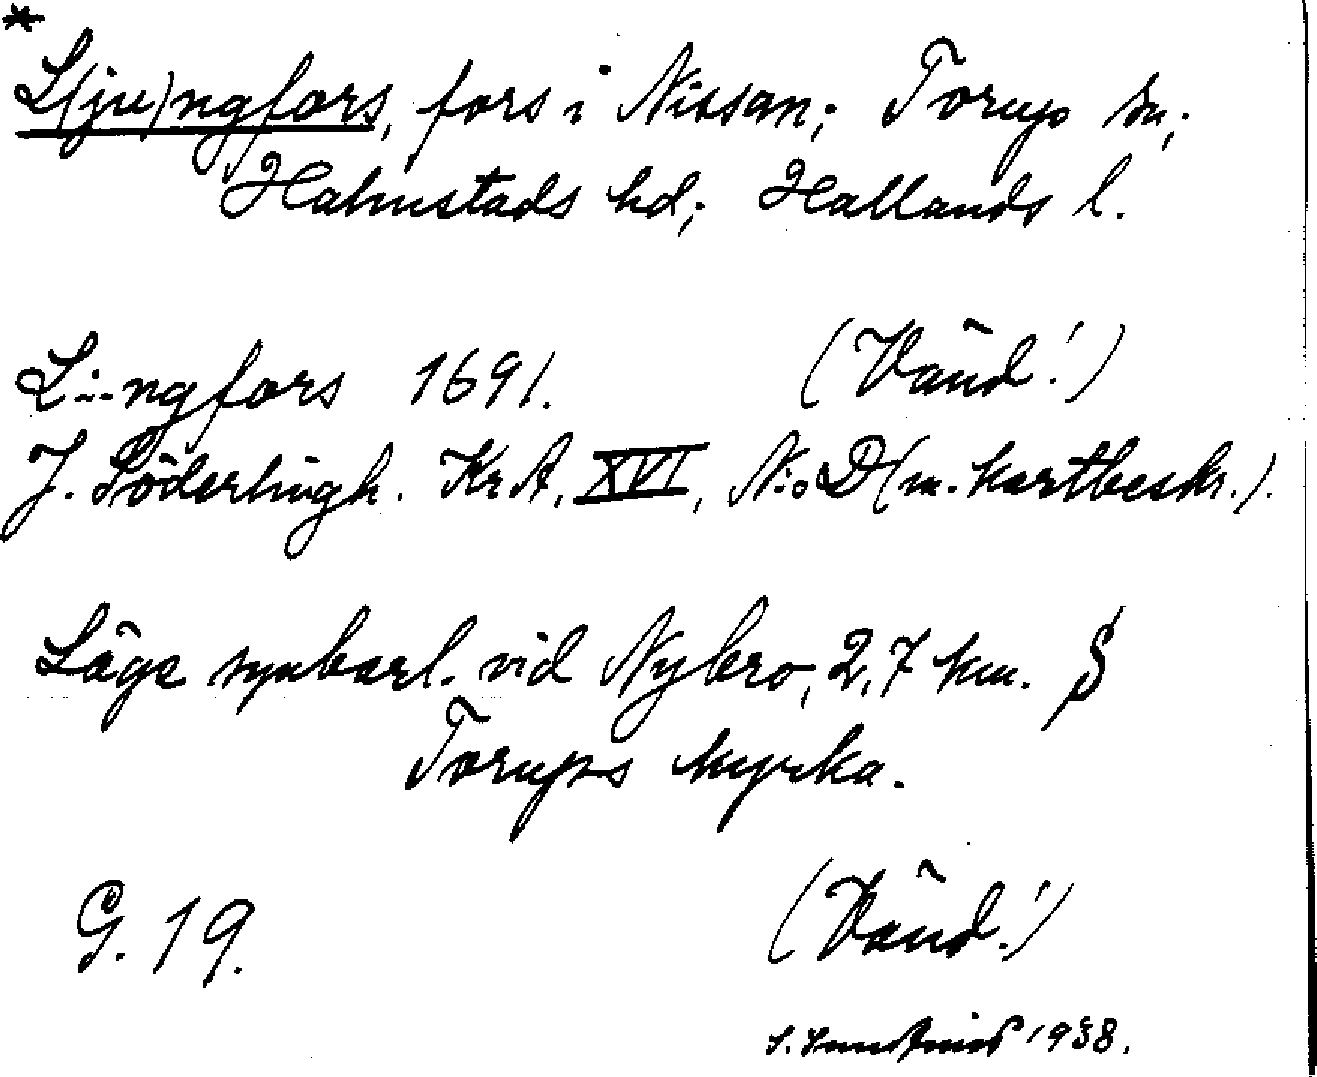 *
L(ju)ngfors, fors i Nissan; Torup sn;
Halmstads hd; Hallands l.
L--ngfors 1691. (Vänd!)
J. Söderlingh. Kr.A. XVI, N:o D (m. kartbeskr.).
Läge synbarl. vid Nybro, 2,7 km. S
Torups kyrka.
G. 19. (Vänd!)
1938.